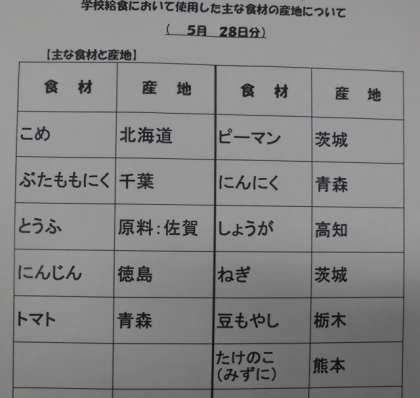 学校給食において使用した主な食材の産地について
( 5月 28日分)
【主な食材と産地】
食 材 産 地 食 材 産 地
こめ 北海道 ピーマン 茨城
ぶたももにく 千葉 にんにく 青森
とうふ 原料:佐賀 しょうが 高知
にんじん 徳島 ねぎ 茨城
トマト 青森 豆もやし 栃木
たけのこ
(みずに) 熊本